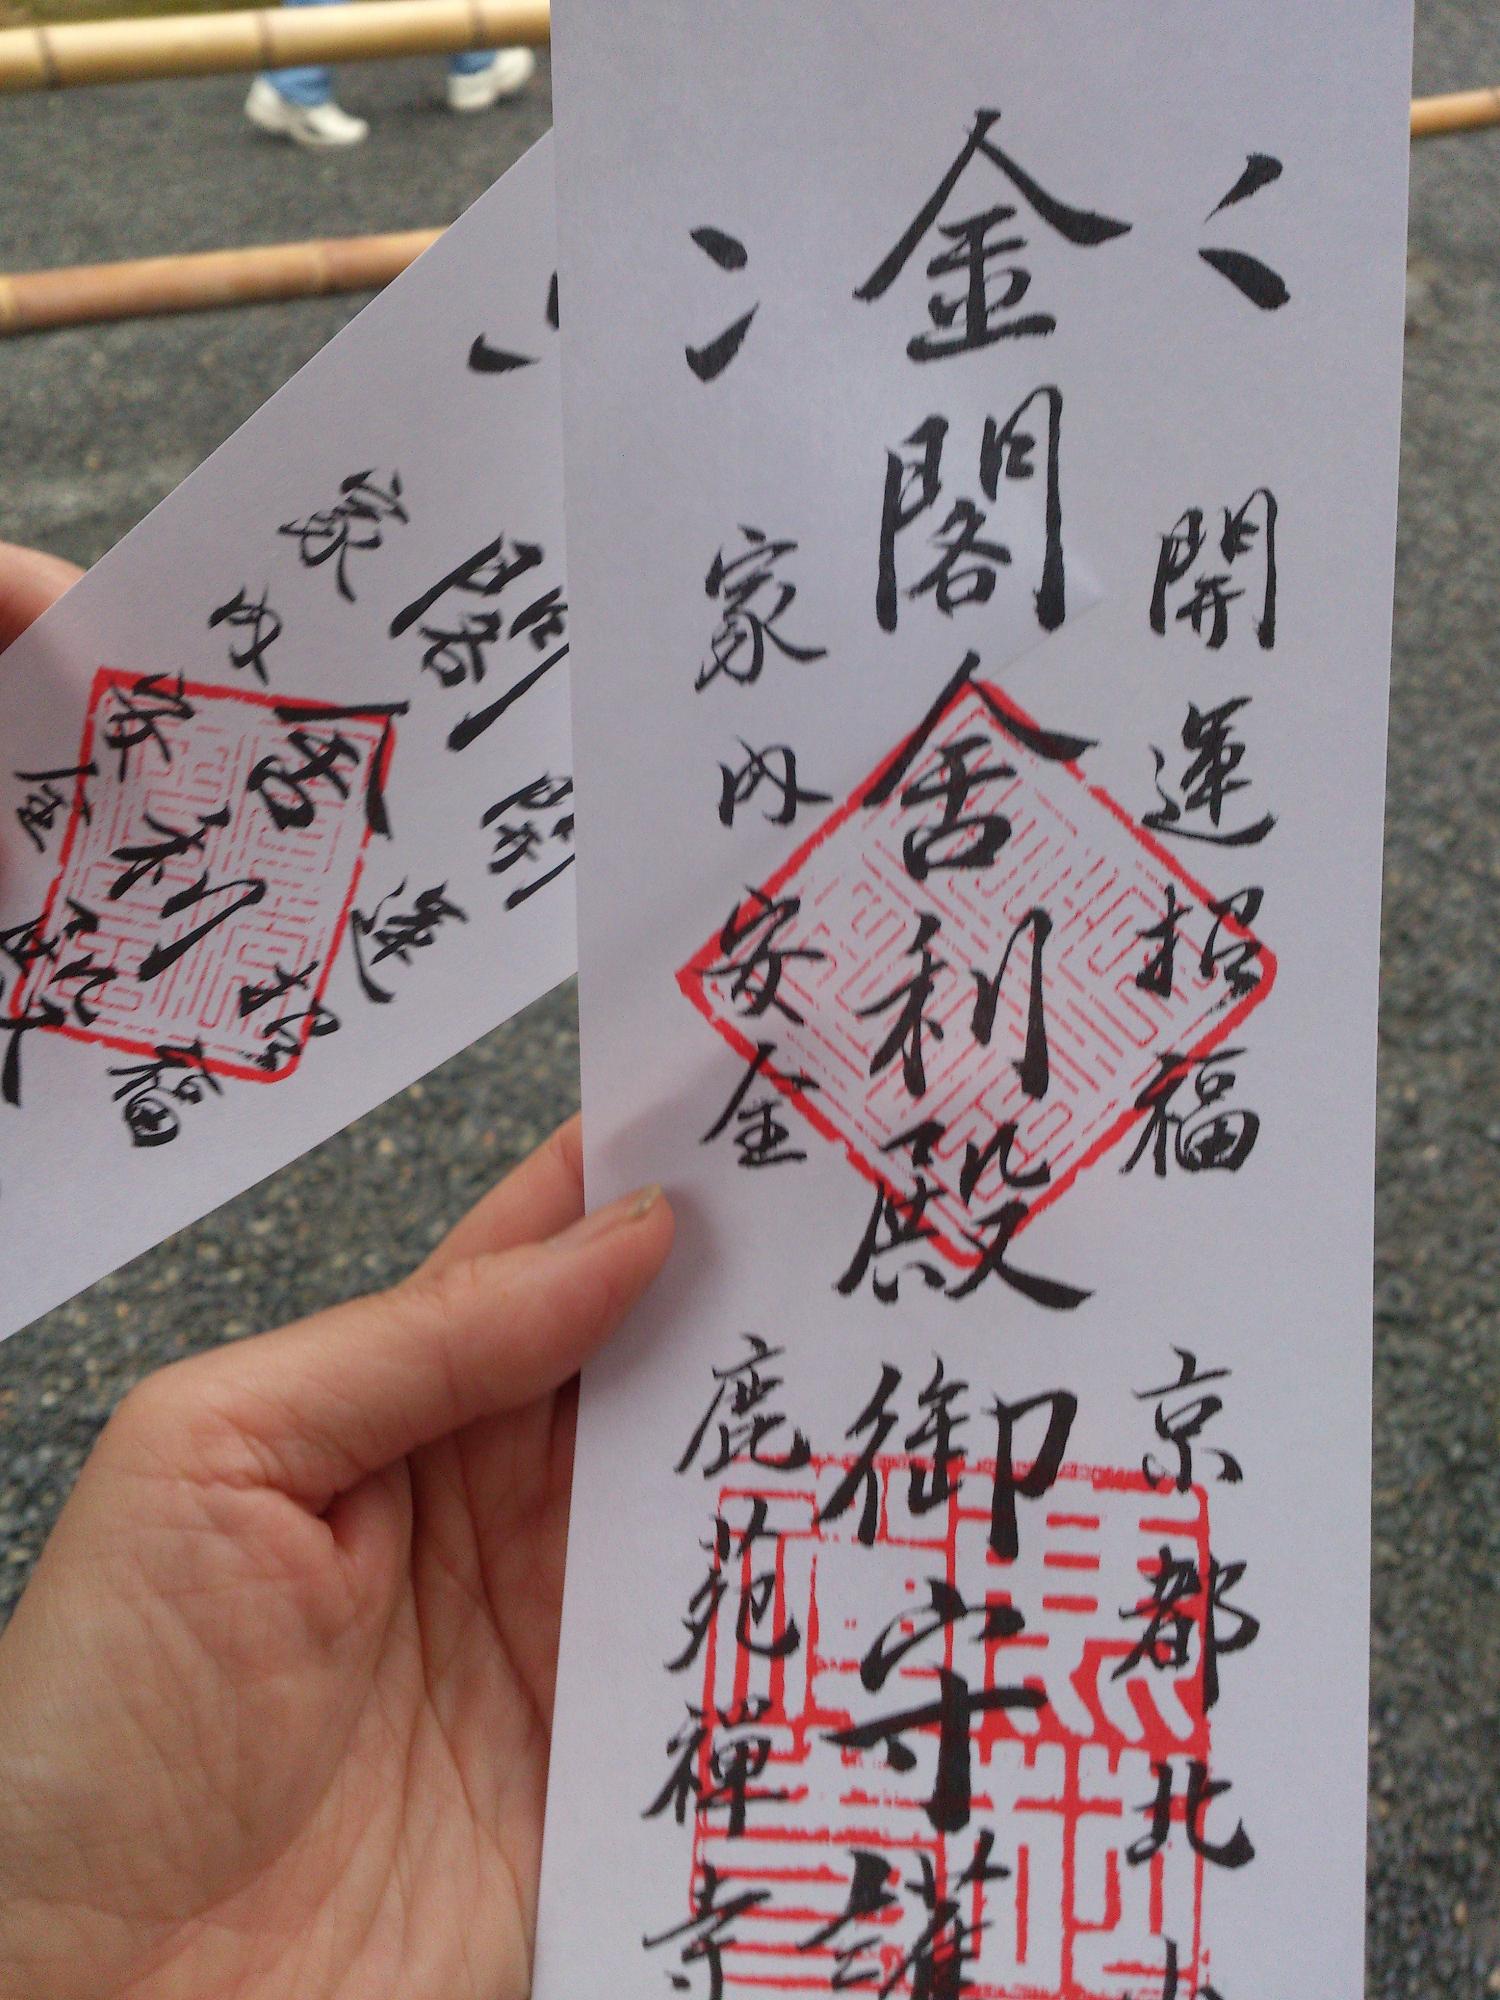 開運招福
京都北
金閣舎利殿
御守護
家内安全
鹿苑禅寺
開運招福
閣舎利殿
家内安全